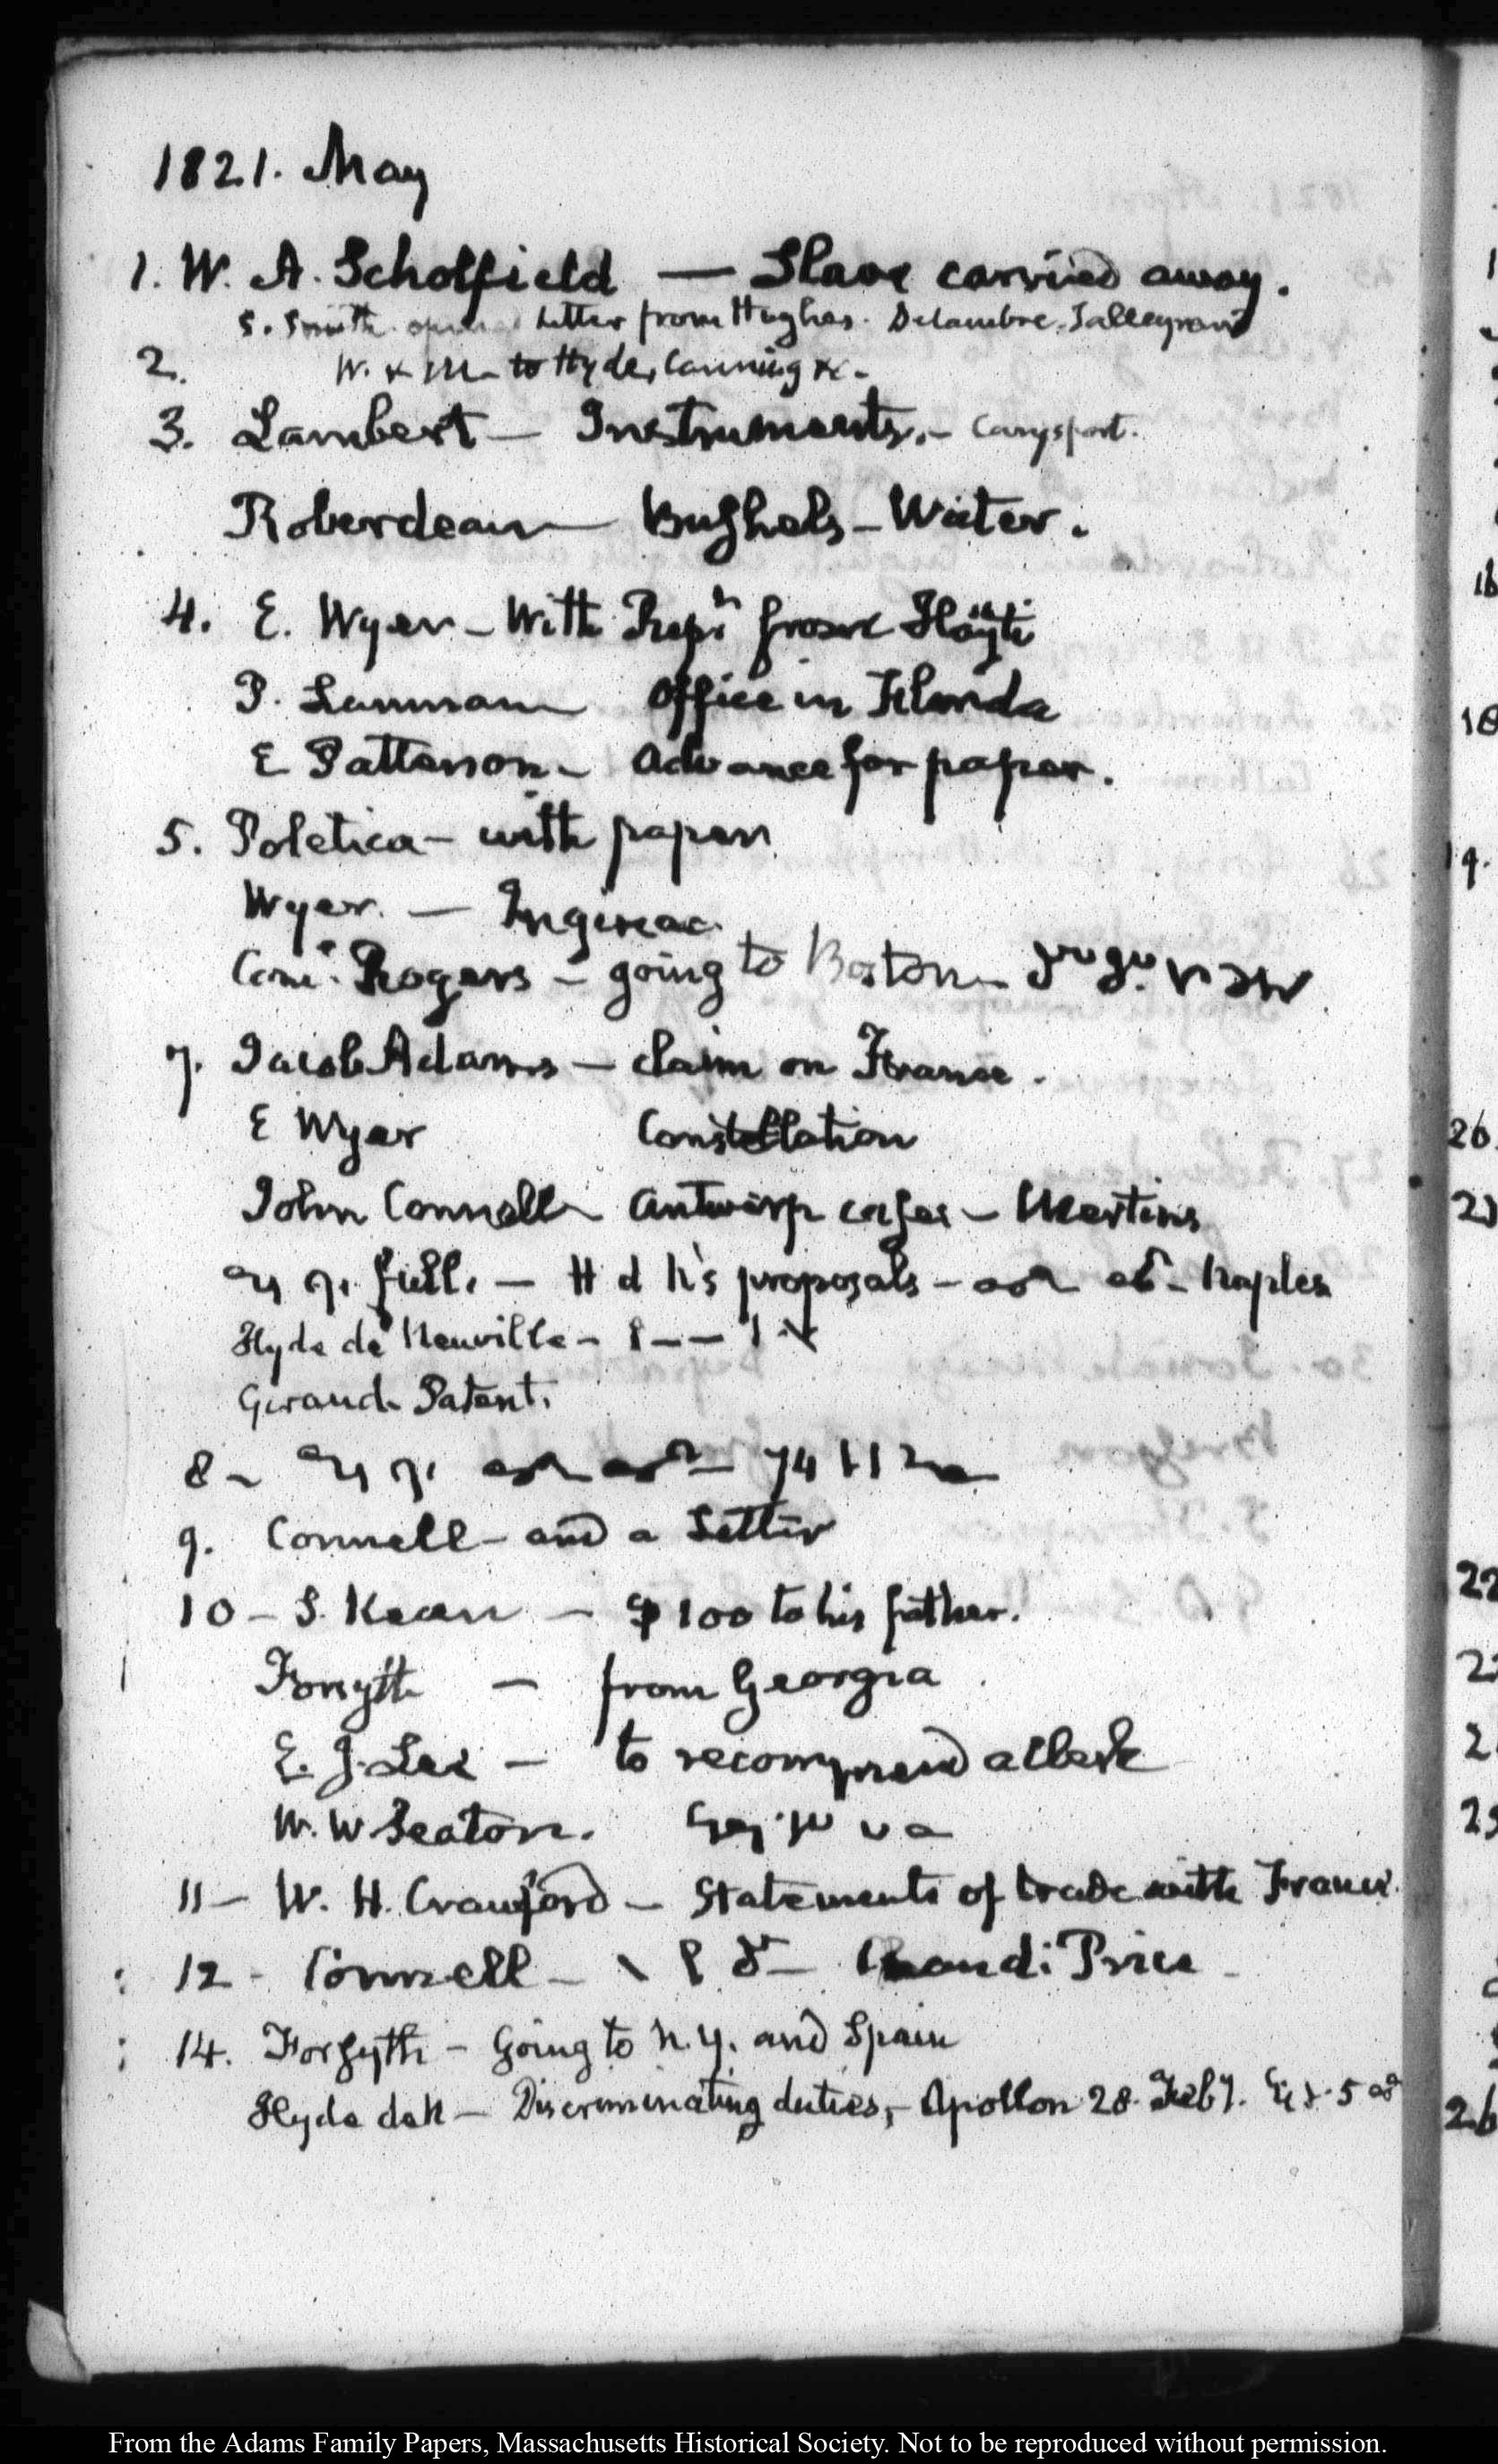 1821. May
1. W. A. Scholfield — Slave carried away.
S. Smith Letter from Hughes. Delambre. Talleyrand
2. W. & M to Hyde, Canning &c-
3. Lambert — Instruments. - Carysfort.
Roberdeau — Bushels — Water.
4. E. Wyer — With from Hayti
P. Lanman Office in Florida
E Patterson — Advance for paper.
5. Poletica — with papers
Wyer. — Inginac.
Com.e Rogers — going to Boston
7. Jacob Adams — claim on France.
E Wyer Constellation
John Connell Antwerp cases —
full. — H d N's proposals — Naples
Hyde de Neuville -
Patent.
8 -
9. Connell — and a Letter
10 — S. Kean — $100 to his father.
Forsyth — from Georgia
E. J. Lee — to recommend a Clerk
W. W Seaton.
11 — W. H. Crawford — Statements of trade with France.
12 - Connell — Price
14. Forsyth — Going to N. Y. and Spain
Hyde de N — Discriminating duties, — Apollon 28. Feby.
From the Adams Family Papers, Massachusetts Historical Society. Not to be reproduced without permission.